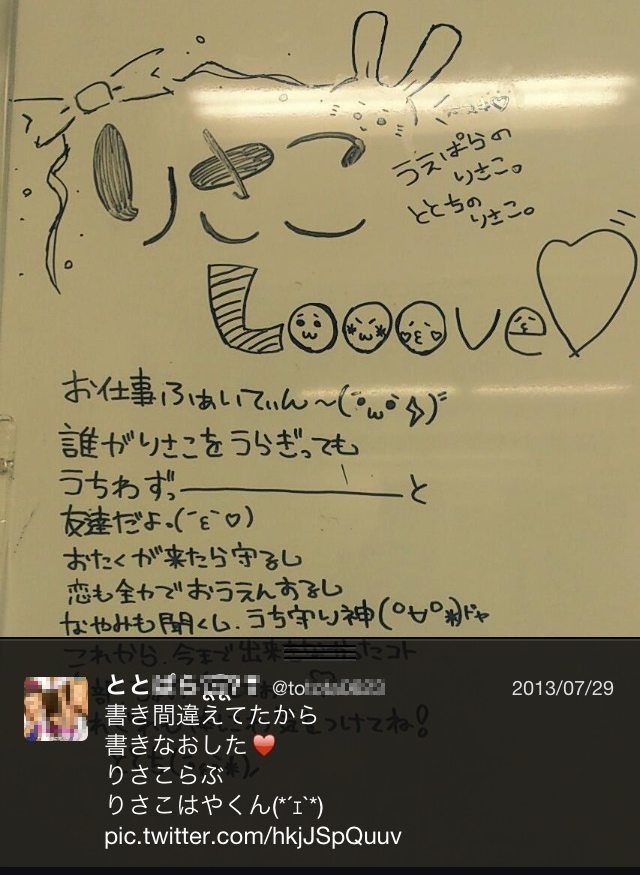 りさこ
うえぱらの
りさこ。
ととちの
りさこ。
Looove
お仕事ふぁいてぃん〜(
誰がりさこをうらぎっても
うちわずっ――――と
友達だよっ(´ε`♡)
おたくが来たら守るし
恋も全力でおうえんするし
なやみも聞くし、うち守り神(°∀°*)ドヤ
これから、今まで出来 たコト
つけてね!
ととぱら
@to
2013/07/29
書き間違えてたから
書きなおした❤️
りさこらぶ
りさこはやくん(*´ェ`*)
pic.twitter.com/hkjJSpQuuv